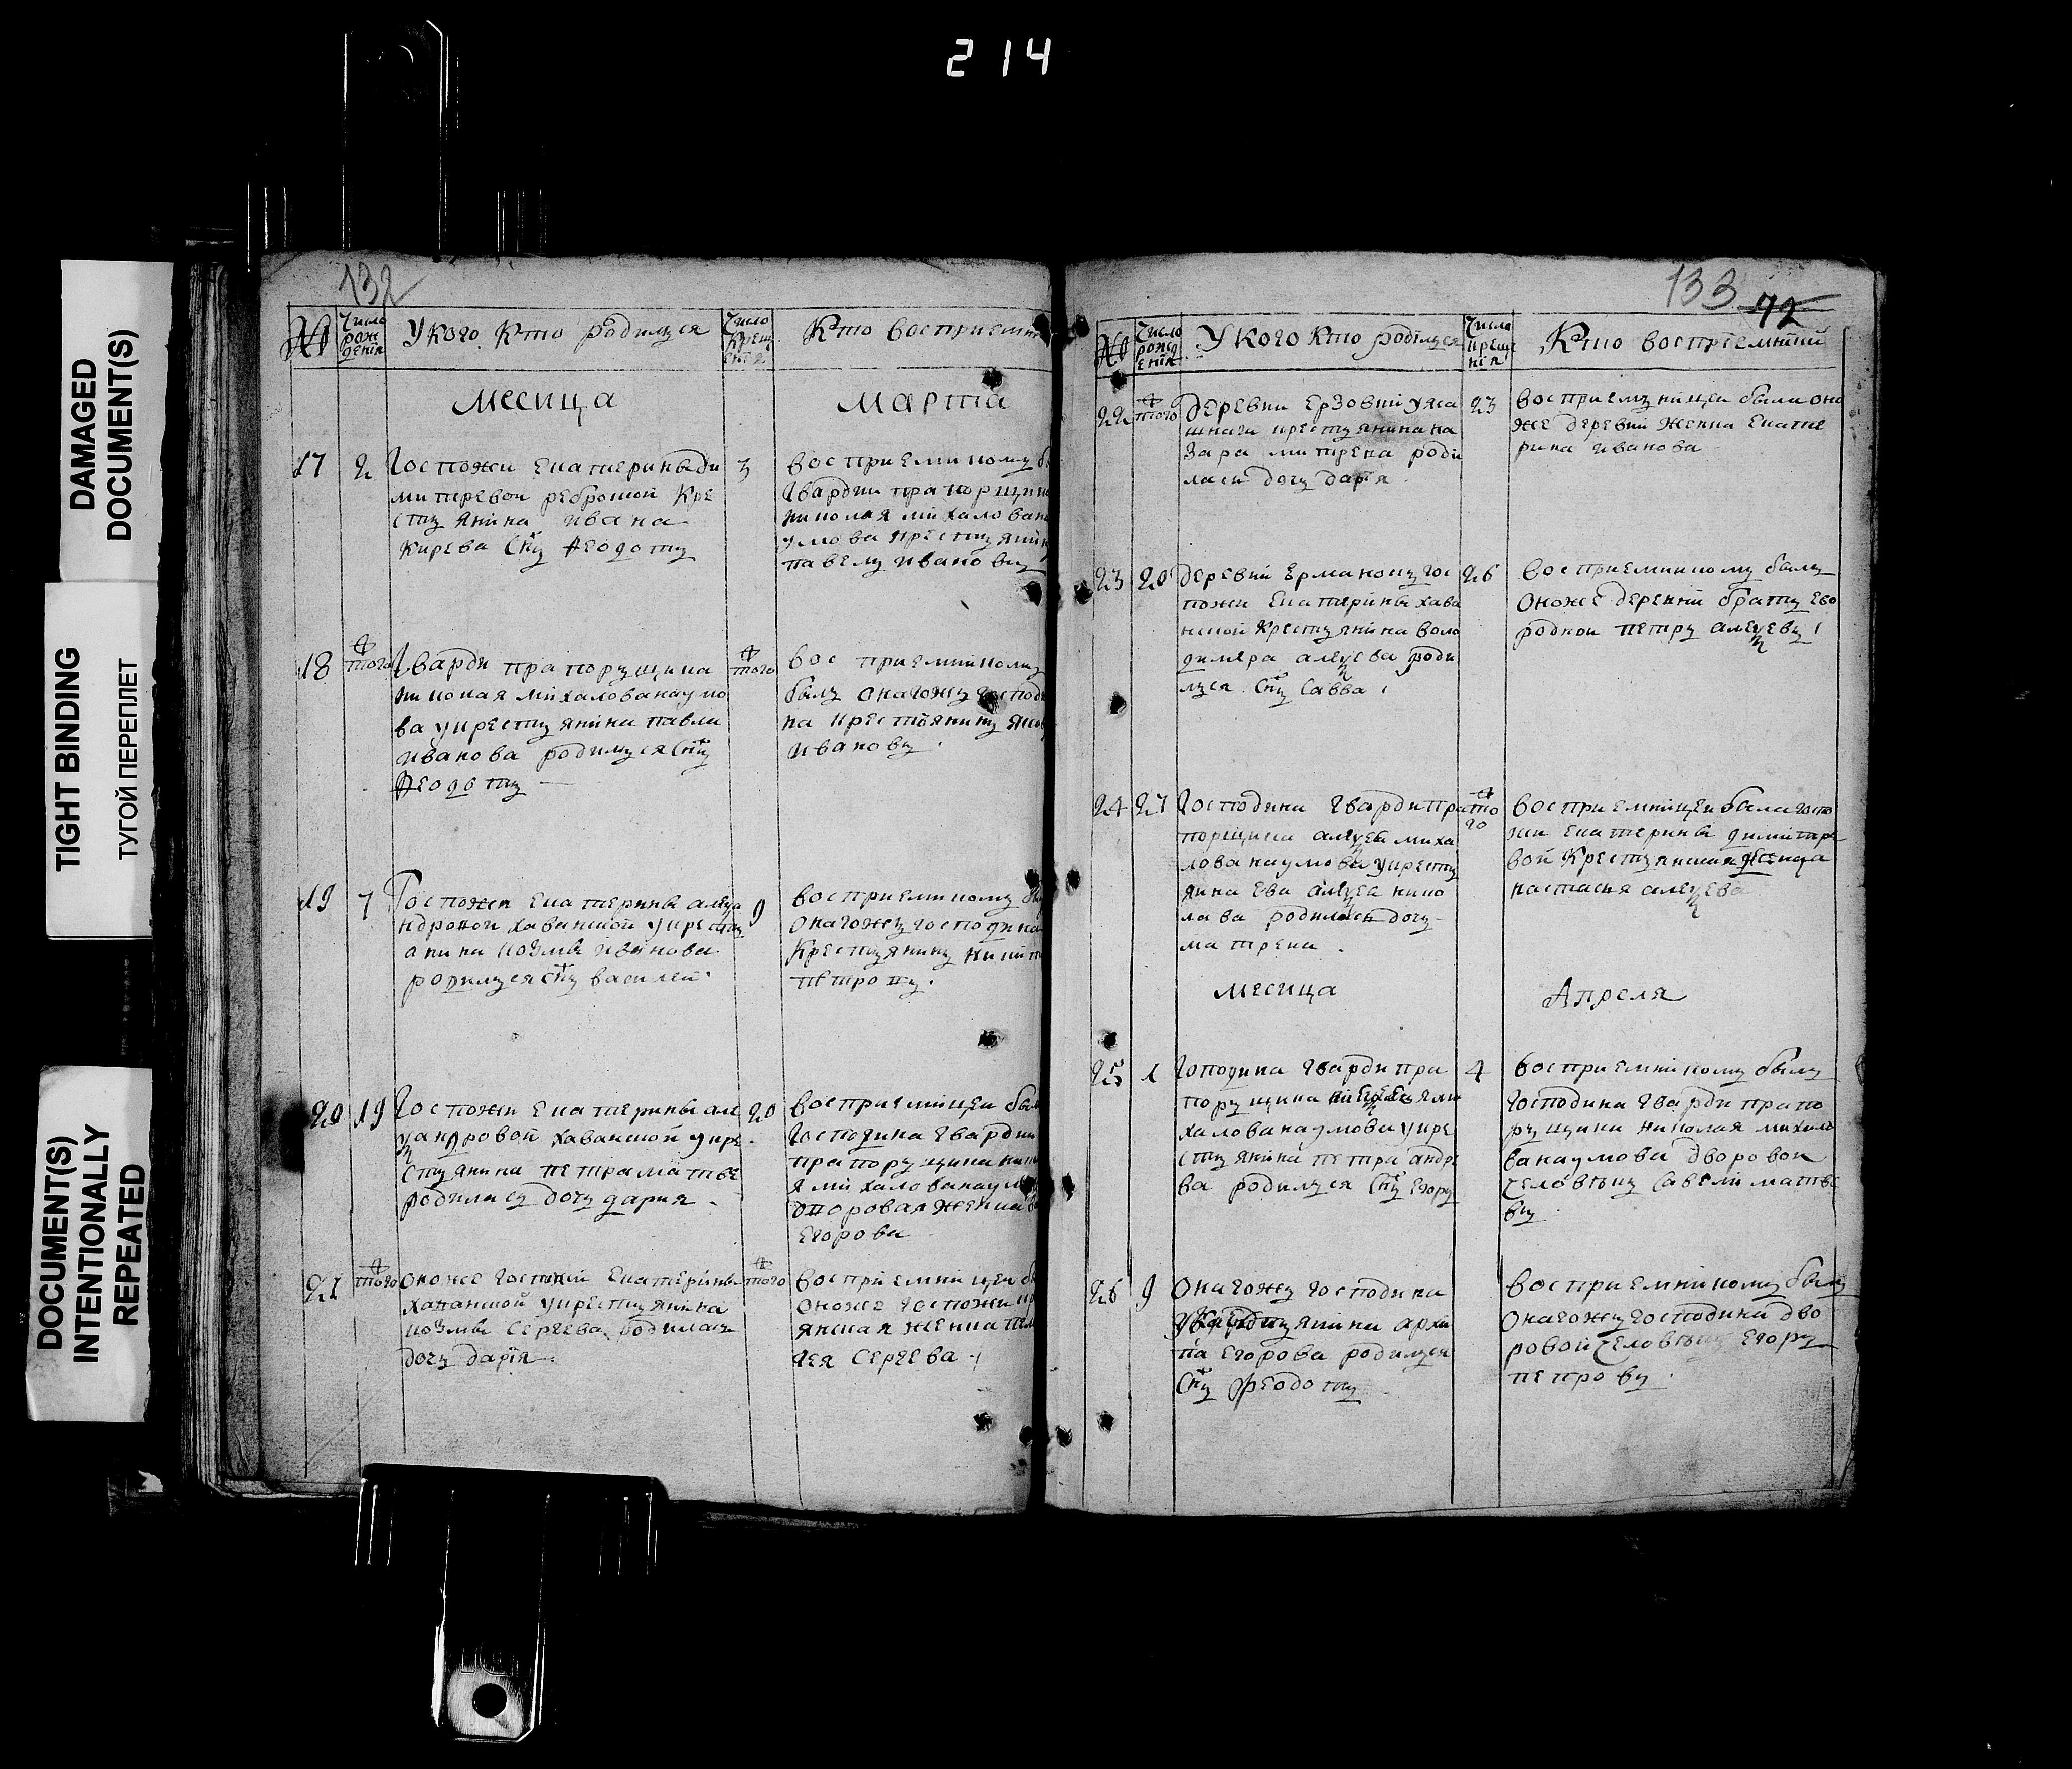 214
DAMAGED
DOCUMENT(S)
TIGHT BINDING
ТУГОЙ ПЕРЕПЛЕТ
DOCUMENT(S)
INTENTIONALLY
REPEATED
132
№
Число рождения
У кого кто родился
Число крещения
Кто восприемни
месица
марта
17
2
Госпожи Екатерины ди
митревои кре
стьянина ивана
Кирева Снъ Ѳеодотъ
3
восприемникомъ
Гвардии прапорщик
николая михалована
умова крестьянин
павелъ ивановъ
18
того
Гвардi прапорщика
николая михалованаумо
ва укрестьянина павла
иванова родился Снъ
Ѳеодотъ
того
восприемником
былъ онагожъ господи
на крестьянинъ яков
ивановъ
19
7
Госпожи Екатерины алеѯа
ндровои хаванскои укрестъ
анина козмы иванова
родилъся Снъ василеи
9
восприемникомъ
онагожъ господина
крестьянинъ никит
петровъ
20
19
Госпожи Екатерины але
ѯандровой хаванскои укре
стьянина петра матве
родиласъ дочъ дария
20
восприемницеи был
Господина гвардии
прапорщика нико
я михалованаум
дворовая женка
Егорова
21
того
оноже госпожи Екатерины
хаванской укрестьянина
козмы сергеева родиласъ
дочъ дария
того
восприемницеи
оноже госпожи кр
янская женка пел
гея Сергеева
133
72
№
Число рождения
У кого кто родился
Число крещения
Кто восприемники
22
того
деревни Ерзовки уяса
шнаги крестьянина на
зара митрева роди
ласи дочъ дария
23
восприемъницеи была оно
же деревни женка Екате
рина иванова
23
20
деревни Ермаковъ гос
пожи Екатерины хава
нской крестьянина воло
димера алеѯева роди
лъся Снъ Савва
26
восприемникомъ былъ
оноже деревни братъ Ево
роднои петръ алеѯевъ
24
27
Господина гвардипра
порщика алеѯея миха
лованаумова укрестъ
янина Ева алеѯея нико
лава родиласи дочъ
матрена
то
го
восприемницеи была госпо
жи Екатерины димитре
вой крестьянская женка
настасья алеѯева
месица
Апреля
25
1
Гоподина гвардипра
поръщика
халованаумова укре
стьянина петра андре
ва родился Снъ Егоръ
4
восприемникомъ былъ
господина гвардипрапо
ръщика николая михало
ванаумова дворовои
человѣкъ Савели матве
въ
26
9
Онагожъ господина
архи
па Егорова родился
Снъ Ѳеодотъ
восприемникомъ былъ
онагожъ господина дво
ровой человѣкъ Егоръ
петровъ